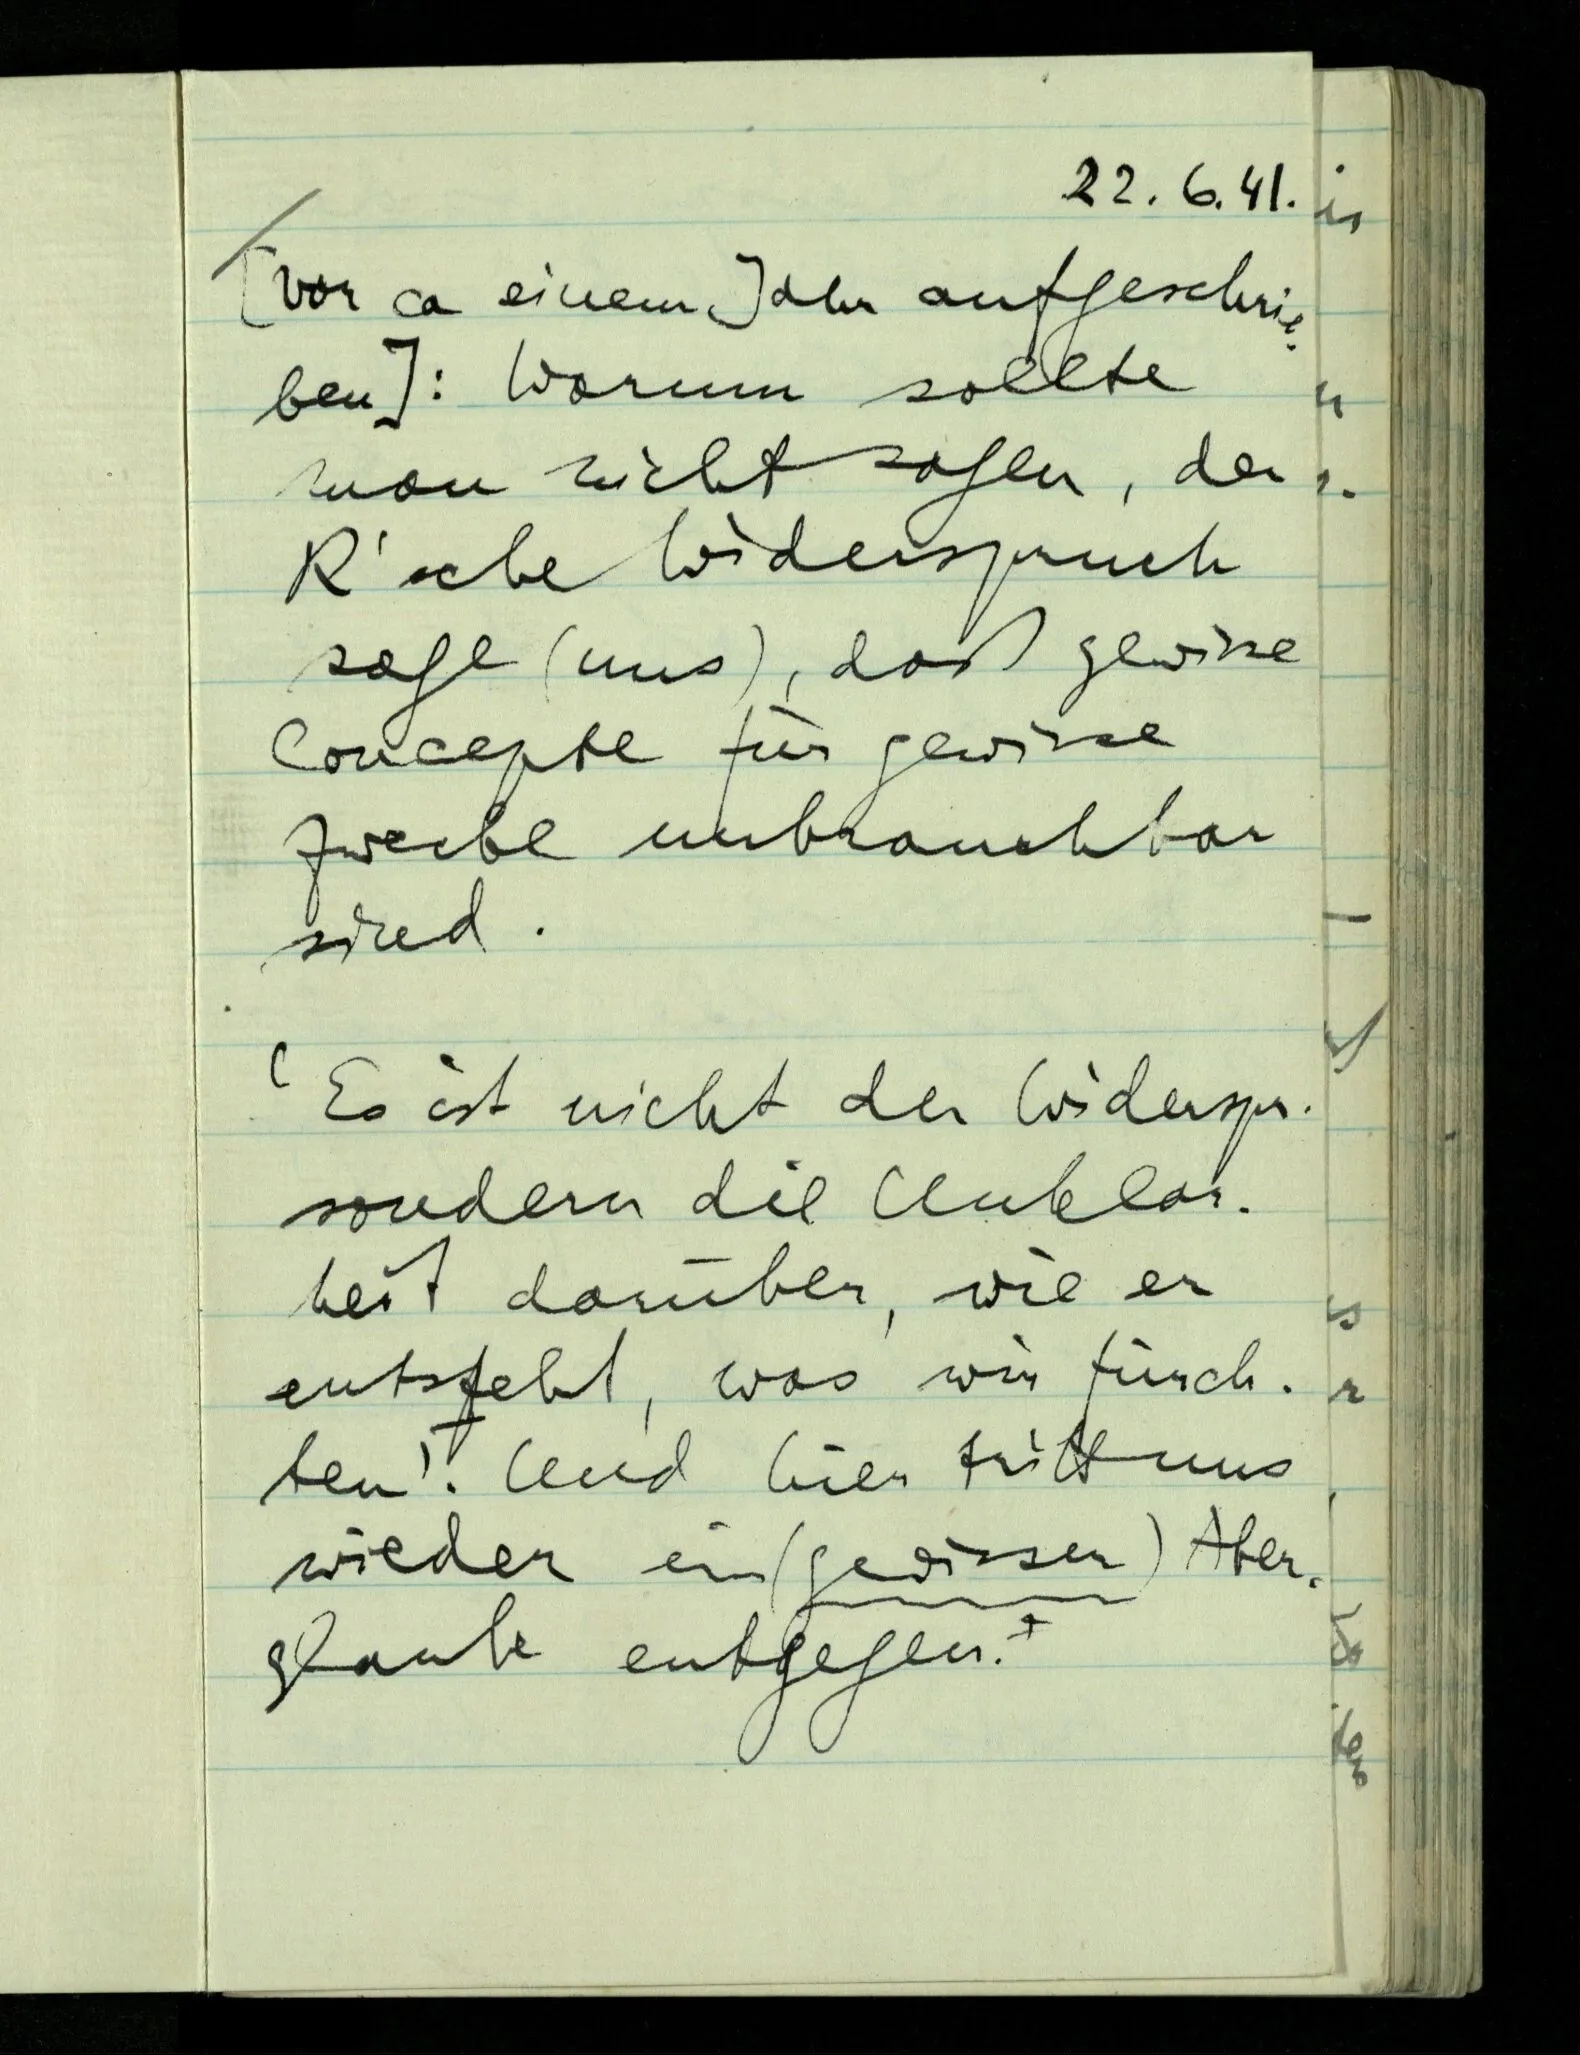 22.6.41.
[Vor ca einem Jahr aufgeschrie-
ben]: Warum sollte
man nicht sagen, der
R'sche Widerspruch
sage (uns), daß gewisse
Concepte für gewisse
Zwecke unbrauchbar
sind.
‘Es ist nicht der Widerspr.
sondern die Unklar-
heit darüber, wie er
entsteht, was wir fürch-
ten’. Und hier tritt uns
wieder ein (gewisser) Aber-
glaube entgegen.+